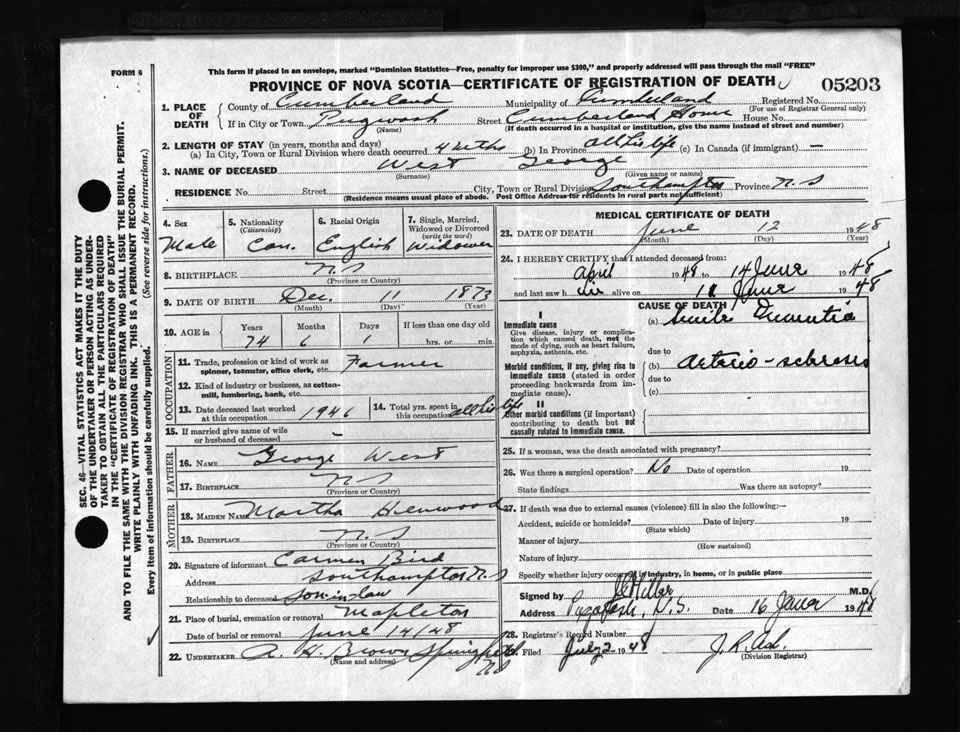 FORM 6
This form if placed in an envelope, marked "Dominion Statistics—Free, penalty for improper use $300," and properly addressed will pass through the mail "FREE"
PROVINCE OF NOVA SCOTIA—CERTIFICATE OF REGISTRATION OF DEATH
05203
1. PLACE OF DEATH
County of Cumberland Municipality of Cumberland Registered No.
(For use of Registrar General only)
If in City or Town Pugwash Street Cumberland Home House No.
(Name) (If death occurred in a hospital or institution, give the name instead of street and number)
2. LENGTH OF STAY (in years, months and days)
(a) In City, Town or Rural Division where death occurred 4 mths (b) In Province all his life (c) In Canada (if immigrant) —
3. NAME OF DECEASED West George
(Surname) (Given name or names)
RESIDENCE No. Street City, Town or Rural Division Southampton Province N.S
(Residence means usual place of abode. Post Office Address for residents in rural parts not sufficient)
4. Sex Male
5. Nationality (Citizenship) Can.
6. Racial Origin English
7. Single, Married, Widowed or Divorced (write the word) Widower
8. BIRTHPLACE N.S
(Province or Country)
9. DATE OF BIRTH Dec. 11 1873
(Month) (Day) (Year)
10. AGE in Years Months Days If less than one day old
74 6 1 hrs. or min.
OCCUPATION
11. Trade, profession or kind of work as spinner, teamster, office clerk, etc. Farmer
12. Kind of industry or business, as cotton-mill, lumbering, bank, etc.
13. Date deceased last worked at this occupation 1946
14. Total yrs. spent in this occupation all his life
15. If married give name of wife or husband of deceased –
FATHER
16. NAME George West
17. BIRTHPLACE N S
(Province or Country)
MOTHER
18. MAIDEN NAME Martha
19. BIRTHPLACE N.S
(Province or Country)
20. Signature of informant Carmen Bird
Address Southampton N.S
Relationship to deceased son-in-law
21. Place of burial, cremation or removal Mapleton
Date of burial or removal June 14/48
22. UNDERTAKER A. H. Brown Springhill
(Name and address) NS
MEDICAL CERTIFICATE OF DEATH
23. DATE OF DEATH June 12 1948
(Month) (Day) (Year)
24. I HEREBY CERTIFY that I attended deceased from:
April 1948 to 14 June 1948
and last saw h im alive on 11 June 1948
CAUSE OF DEATH
I
Immediate cause
Give disease, injury or complication which caused death, not the mode of dying, such as heart failure, asphyxia, asthenia, etc.
(a) Senile Dementia
due to
Morbid conditions, if any, giving rise to immediate cause (stated in order proceeding backwards from immediate cause).
(b) Arterio-
due to
(c)
II
Other morbid conditions (if important) contributing to death but not causally related to immediate cause.
25. If a woman, was the death associated with pregnancy?
26. Was there a surgical operation? No Date of operation 19
State findings Was there an autopsy?
27. If death was due to external causes (violence) fill in also the following:—
Accident, suicide or homicide? Date of injury 19
(State which)
Manner of injury
(How sustained)
Nature of injury
Specify whether injury occurred in industry, in home, or in public place
Signed by Miller M.D.
Address Pugwash, N.S. Date 16 June 1948
28. Registrar's Record Number
29. Filed July 2 1948
(Division Registrar)
SEC. 46—VITAL STATISTICS ACT MAKES IT THE DUTY
OF THE UNDERTAKER OR PERSON ACTING AS UNDER-
TAKER TO OBTAIN ALL THE PARTICULARS REQUIRED
IN THE "CERTIFICATE OF REGISTRATION OF DEATH"
AND TO FILE THE SAME WITH THE DIVISION REGISTRAR WHO SHALL ISSUE THE BURIAL PERMIT.
WRITE PLAINLY WITH UNFADING INK. THIS IS A PERMANENT RECORD.
Every item of information should be carefully supplied. (See reverse side for instructions.)